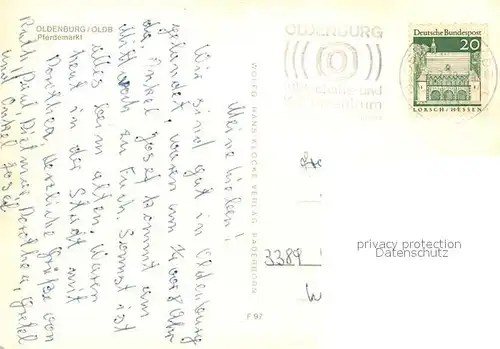 OLDENBURG/OLDB
Pferdemarkt
Meine Lieben!
Wir sind gut in Oldenburg
gelandet, waren um 14 Uhr
da. Onkel Josef kommt am
Mittwoch zu Euch. Sonst ist
alles beim alten. Waren
heut in der Stadt mit
Dorothea, Herzliche Grüße von
Ruth, Paul, Dietmar, Dorothea, Gretel
und Onkel Josef
WOLFG. HANS KLOCKE VERLAG, PADERBORN
F 97
OLDENBURG
und
Deutsche Bundespost
20
LORSCH/HESSEN
3389
privacy protection
Datenschutz